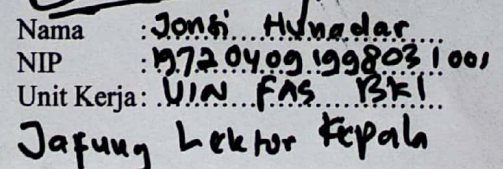 Nama : Jonsi Hunadar
NIP : 19720409 199803 1 001
Unit Kerja: UIN FAS BKl
Jafung Lektor Kepala